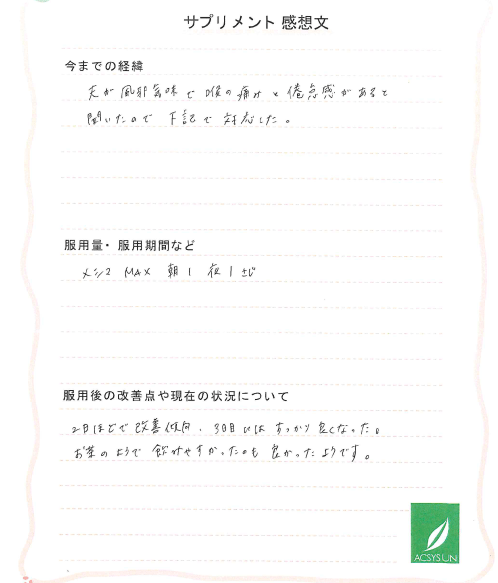 サプリメント 感想文
今までの経緯
夫が風邪気味で喉の痛みと倦怠感があると
聞いたので 下記で対応した。
服用量・服用期間など
メシマ MAX 朝1 夜1 さじ
服用後の改善点や現在の状況について
2日ほどで改善傾向、3日目にはすっかり良くなった。
お茶のようで 飲みやすかったのも 良かったようです。
ACSYSUN